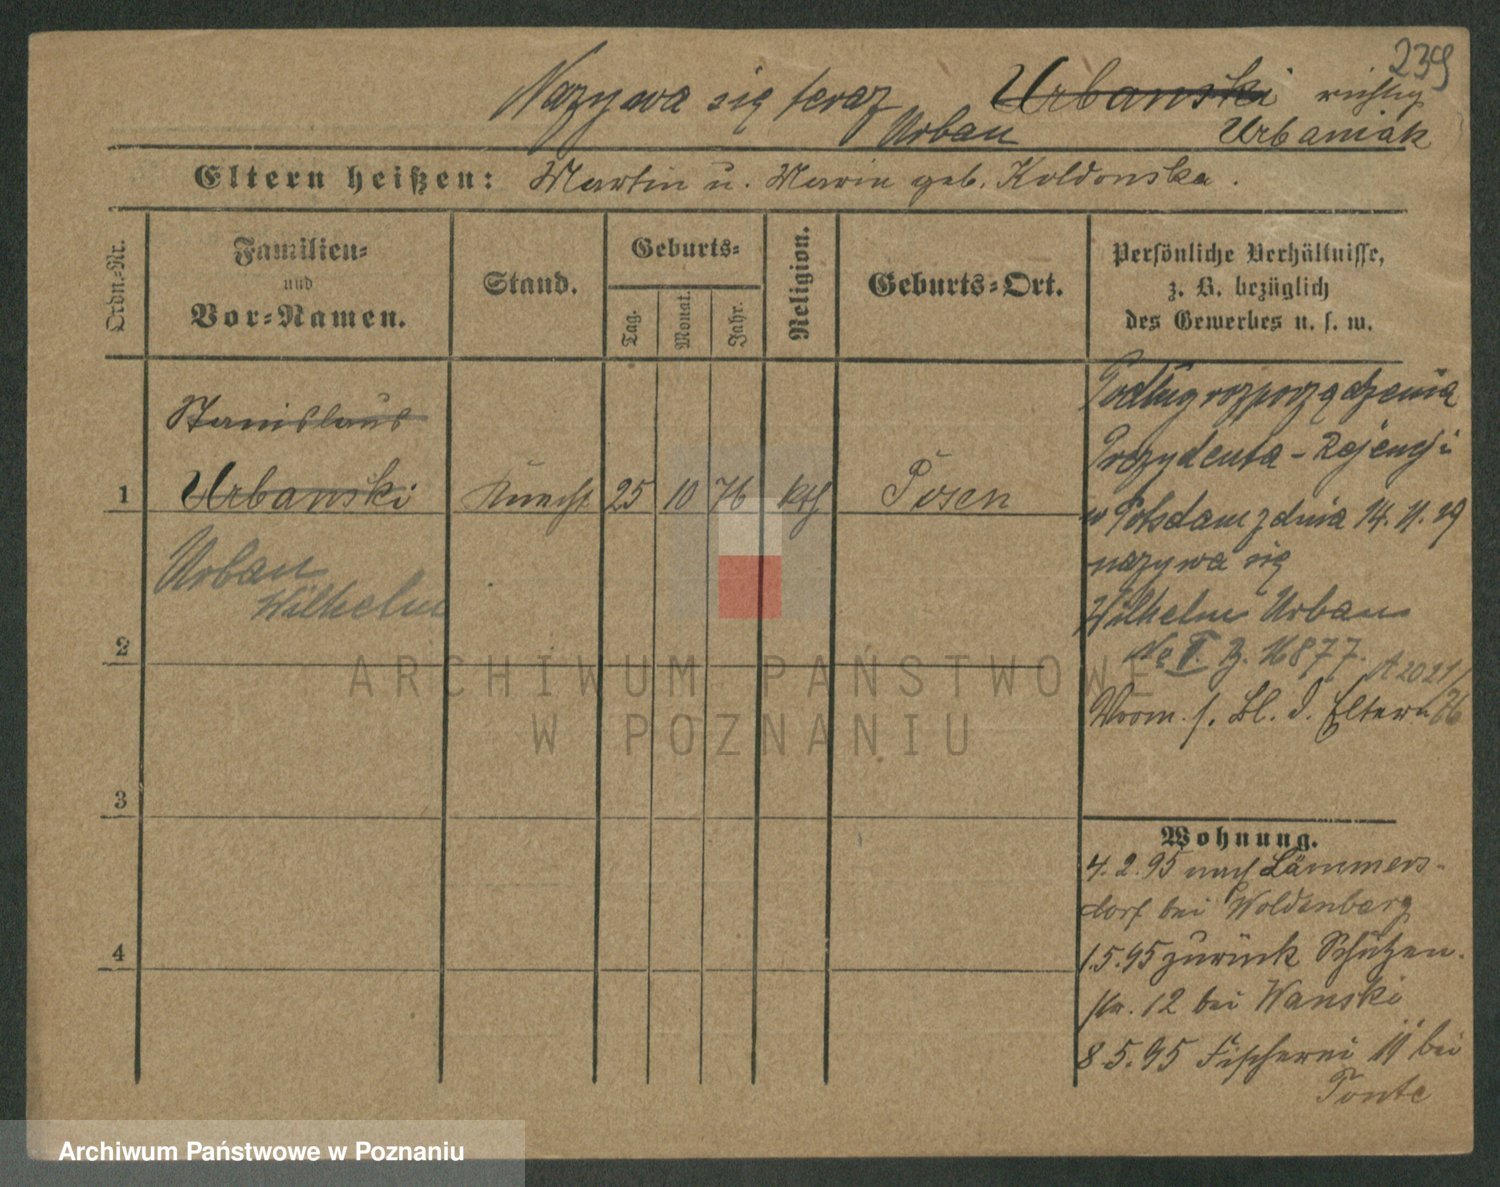 239
Nazywa się teraz Urbanski richtig
Urban Urbaniak
Eltern heißen: Martin u. Marie geb. Koldonska.
Ordn.-Nr.
Familien-
und
Vor-Namen.
Stand.
Geburts-
Tag.
Monat.
Jahr.
Religion.
Geburts-Ort.
Persönliche Verhältnisse,
z. B. bezüglich
des Gewerbes u. s. w.
Stanislaus
1 Urbanski Knecht 25 10 76 kth Posen
Urban
Wilhelm
2
3
4
Podług rozporządzenia
Prezydenta - Rejencji
w Potsdam z dnia 14. 11. 19
nazywa się
Wilhelm Urban
No I. Z. 16877.
A 2021/
76
Vorm. s. Bl. d. Eltern
Wohnung.
4. 2. 95 nach Lämmers-
dorf bei Woldenberg
1. 5. 95 zurück Schützen-
str. 12 bei Wanski
8. 5. 95 Fischerei 11 bei
Ponte
ARCHIWUM PAŃSTWOWE
W POZNANIU
Archiwum Państwowe w Poznaniu